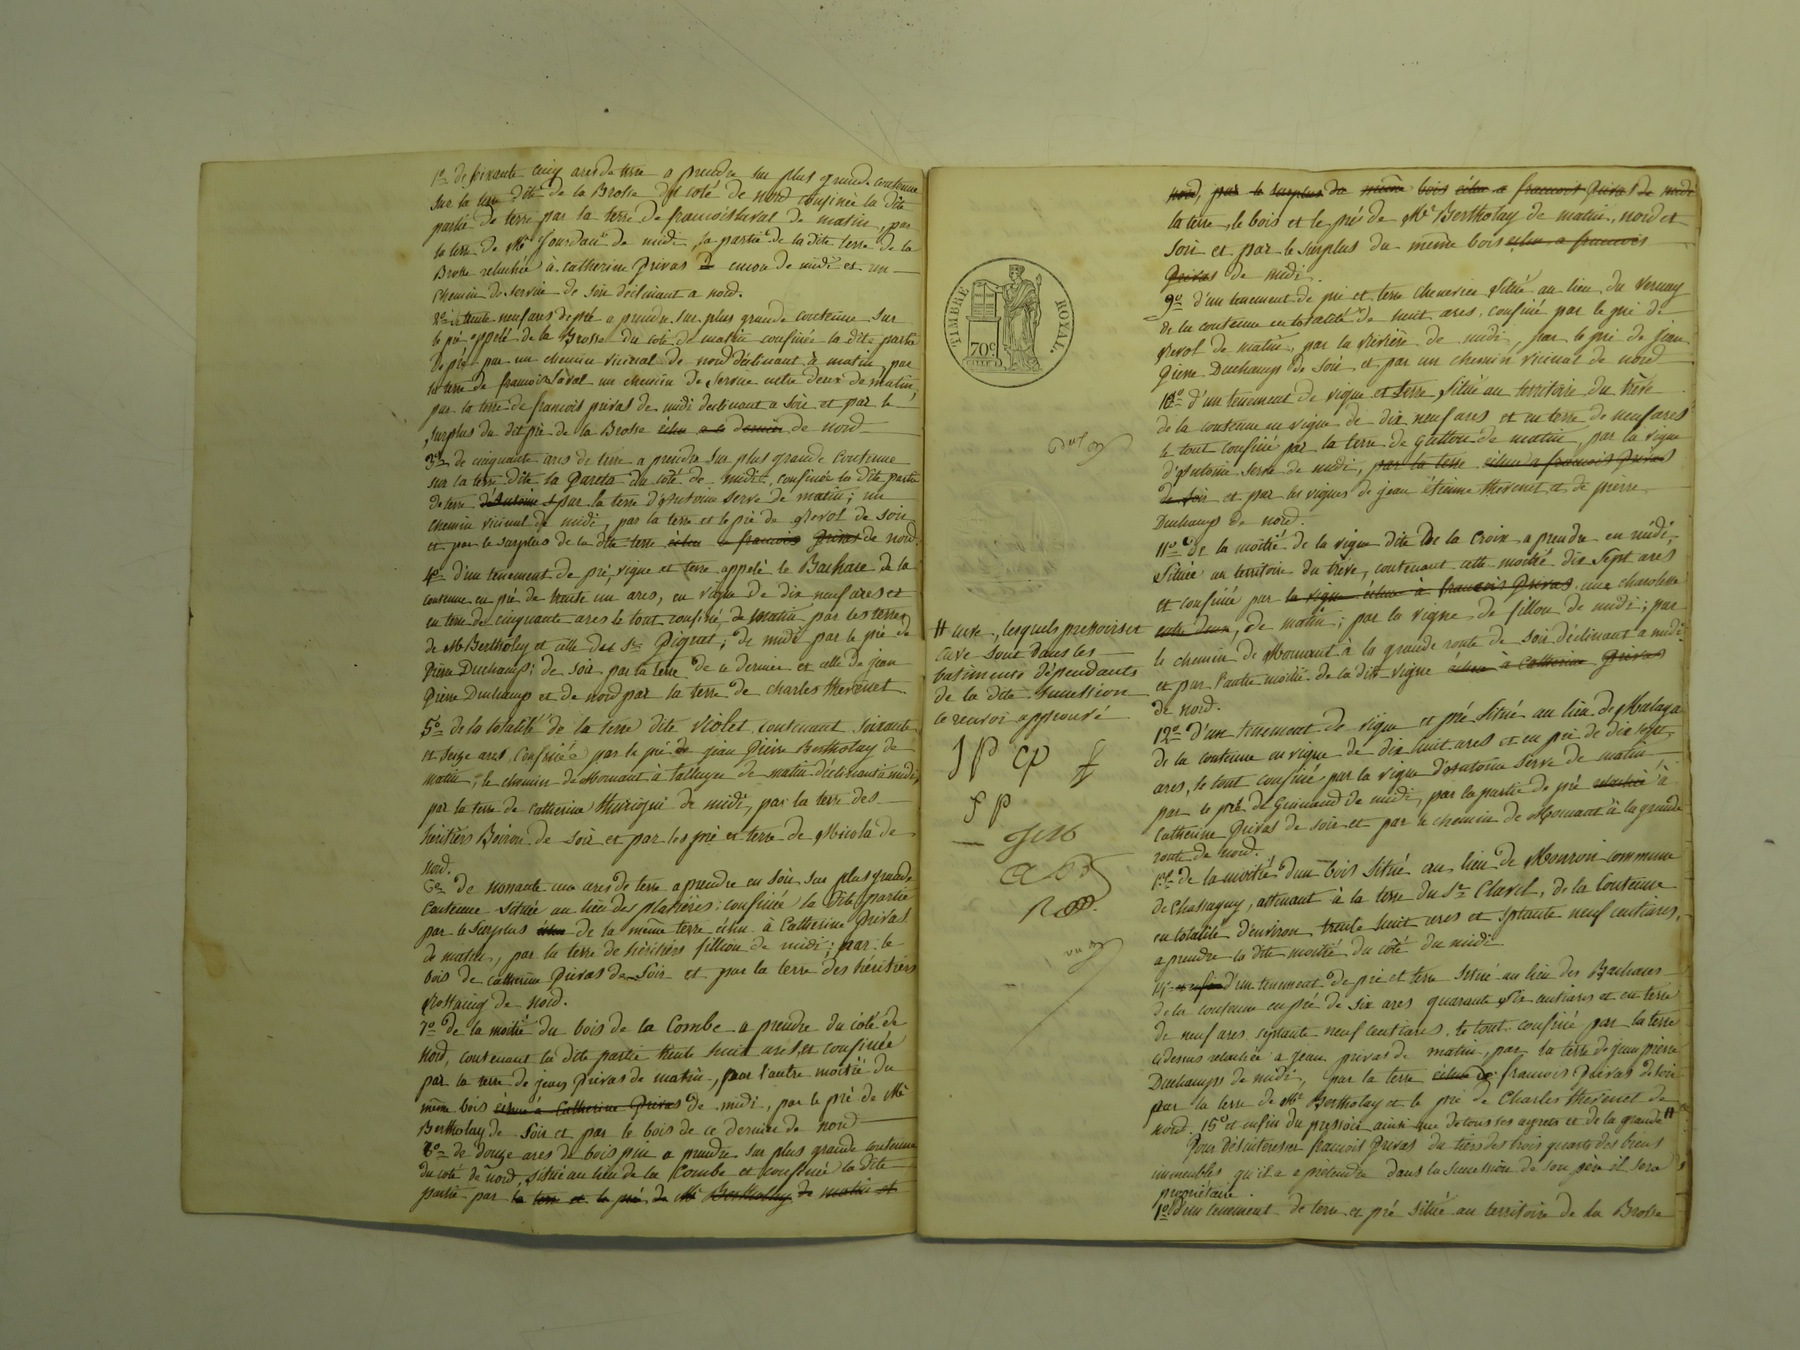 1o de soixante cinq ares de terre a prendre sur plus grande contenue
sur la terre dite de la Brosse du coté de nord confinée la dite
partie de terre par la terre de francois Laval de matin, par
la terre de Mr Jourdan de midi, la partie de la dite terre de la
Brosse relachée à Catherine Privas encore de midi et un
chemin de service de soir déclinant a nord.
2o de trente neuf ares de pré a prendre sur plus grande contenue sur
le pré appelé de la Brosse du coté de matin confinée la dite partie
de pré par un chemin vicinal de nord déclinant à matin, par
la terre de francois Laval un chemin de service entre deux de matin,
par la terre de francois privas de midi declinant a soir et par le
surplus du dit pré de la Brosse échu a ce dernier de nord
3o de cinquante ares de terre a prendre sur plus grande contenue
sur la terre dite la Pareta du coté de midi, confinée la dite partie
de terre d'Antoine par la terre d'Antoine Serve de matin; un
chemin vicinal de midi, par la terre et le pré de Revol de soir
et par le surplus de la dite terre échu a francois Privas de nord.
4o d'un tenement de pré, vigne et terre appelé le Bachase de la
contenue en pré de trente un ares, en vigne de dix neuf ares et
en terre de cinquante ares le tout confiné, de matin par les terres
de Mr Bertholey et celle des Srs Pignat; de midi par le pré de
Pierre Duchamp; de soir par la terre de ce dernier et celle de jean
Pierre Duchamp et de nord par la terre de Charles thevenet.
5o de la totalité de la terre dite violet contenant soixante
et seize ares, confinée par le pré de jean Pierre Bertholay de
matin, le chemin de Mornant à talluyer de matin déclinant à midi,
par la terre de Catherine de midi, par la terre des
héritiers Boiron de soir et par les pré et terre de Nicola de
nord.
6o de nonante une ares de terre a prendre en soir, sur plus grande
contenue située au lieu des platières; confinée la dite partie
par le surplus échu de la même terre échu à Catherine Privas
de matin, par la terre de héritiers fillion de midi; par le
bois de Catherine Privas de soir et par la terre des héritiers
de nord.
7o de la moitié du bois de la Combe a prendre du coté de
nord, contenant la dite partie trente huit ares et confinée
par la terre de jean Privas de matin, par l'autre moitié du
même bois échue à Catherine Privas de midi, par le pré de Mr
Bertholay de soir et par le bois de ce dernier de nord
8o de douze ares de bois pin a prendre sur plus grande contenue
du coté de nord, située au lieu de la Combe et confinée la dite
partie par la terre et le pré de Mr Bertholay de matin et
TIMBRE ROYAL.
70c
# cuve, lesquels pressoirs et
cuve sont dans les
batiments dépendants
de la dite succession
ce renvoi approuvé
J P CP
f P
nord, par le surplus du même bois échu a francois Privas de midi
la terre, le bois et le pré de Mr Bertholay de matin, nord et
soir et par le surplus du même bois échu a francois
Privas de midi.
9o d'un tenement de pré et terre chenevier situé au lieu du Vernay
de la contenue en totalité de huit ares, confiné par le pré de
Revol de matin, par la rivière de midi, par le pré de jean
Pierre Duchamp de soir et par un chemin vicinal de nord
10o d'un tenement de vigne et terre situé au territoire du trève
de la contenue en vigne de dix neuf ares et en terre de neuf ares
le tout confiné par la terre de Guttou de matin, par la vigne
d'Antoine Serve de midi, par la terre échue a francois Privas
de soir et par les vignes de jean étienne thevenet et de pierre
Duchamp de nord.
11o de la moitié de la vigne dite de la Croix a prendre en midi,
située au territoire du trève, contenant cette moitié dix sept ares
et confinée par la vigne échue à francois Privas une
entre deux, de matin; par la vigne de fillou de midi; par
le chemin de Mornant à la grande route de soir déclinant a midi
et par l'autre moitié de la dite vigne échue à Catherine Privas
de nord.
12o d'un tenement de vigne et pré situé au lieu de Malaga
de la contenue en vigne de dix huit ares et en pré de dix sept
ares, le tout confiné par la vigne d'Antoine Serve de matin
par le pré de Guinand de midi, par la partie de pré relachée à
Catherine Privas de soir et par le chemin de Mornant à la grande
route de nord.
13o de la moitié d'un bois situé au lieu de Monron commune
de Chassagny, attenant à la terre du Sr Clavel, de la contenue
en totalité d'environ trente huit ares et septante neuf centiares,
a prendre la dite moitié du coté du midi
14o d'un tenement de pré et terre situé au lieu des Bachases
de la contenue en pré de six ares quarante six centiares et en terre
de neuf ares septante neuf centiares, le tout confiné par la terre
cidessus relachée a jean privas de matin, par la terre de jean pierre
Duchamps de midi, par la terre échue de francois Privas de soir
par la terre de Mr Bertholay et le pré de Charles thevenet de
nord. 15o et enfin du pressoir ainsi que de tous ses agrets et de la grande #
Pour désintéresser francois Privas du tiers des trois quarts des biens
immeubles qu'il a a prétendre dans la succession de son père il sera
propriétaire.
1o d'un tenement de terre et pré situé au territoire de la Brosse